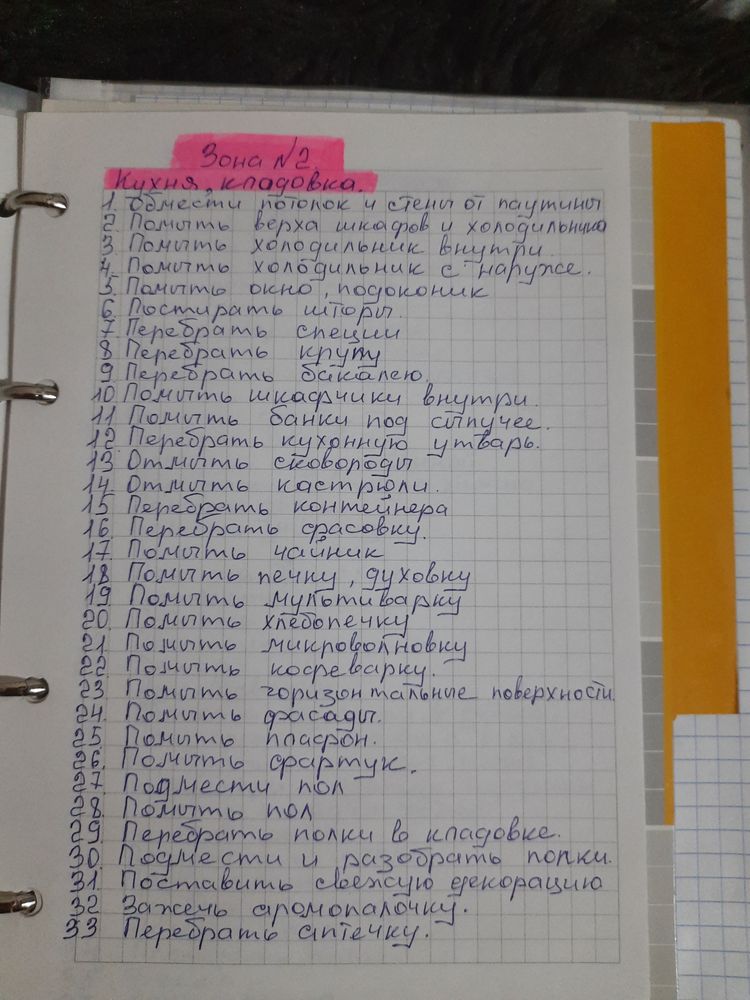 Зона №2.
Кухня, кладовка.
1. Обмести потолок и стены от паутины
2. Помыть верха шкафов и холодильника
3. Помыть холодильник внутри.
4. Помыть холодильник с наруже.
5. Помыть окно, подоконик
6. Постирать шторы.
7. Перебрать специи
8. Перебрать крупу
9. Перебрать бакалею.
10. Помыть шкафчики внутри.
11. Помыть банки под сыпучее.
12. Перебрать кухонную утварь.
13. Отмыть сковороды
14. Отмыть кастрюли.
15. Перебрать контейнера
16. Перебрать фасовку.
17. Помыть чайник
18. Помыть печку, духовку
19. Помыть мультиварку
20. Помыть хлебопечку
21. Помыть микроволновку
22. Помыть кофеварку.
23. Помыть горизонтальные поверхности.
24. Помыть фасады.
25. Помыть плафон.
26. Помыть фартук.
27. Подмести пол
28. Помыть пол
29. Перебрать полки в кладовке.
30. Подмести и разобрать полки.
31. Поставить свежую декорацию
32. Зажечь аромопалочку.
33 Перебрать аптечку.